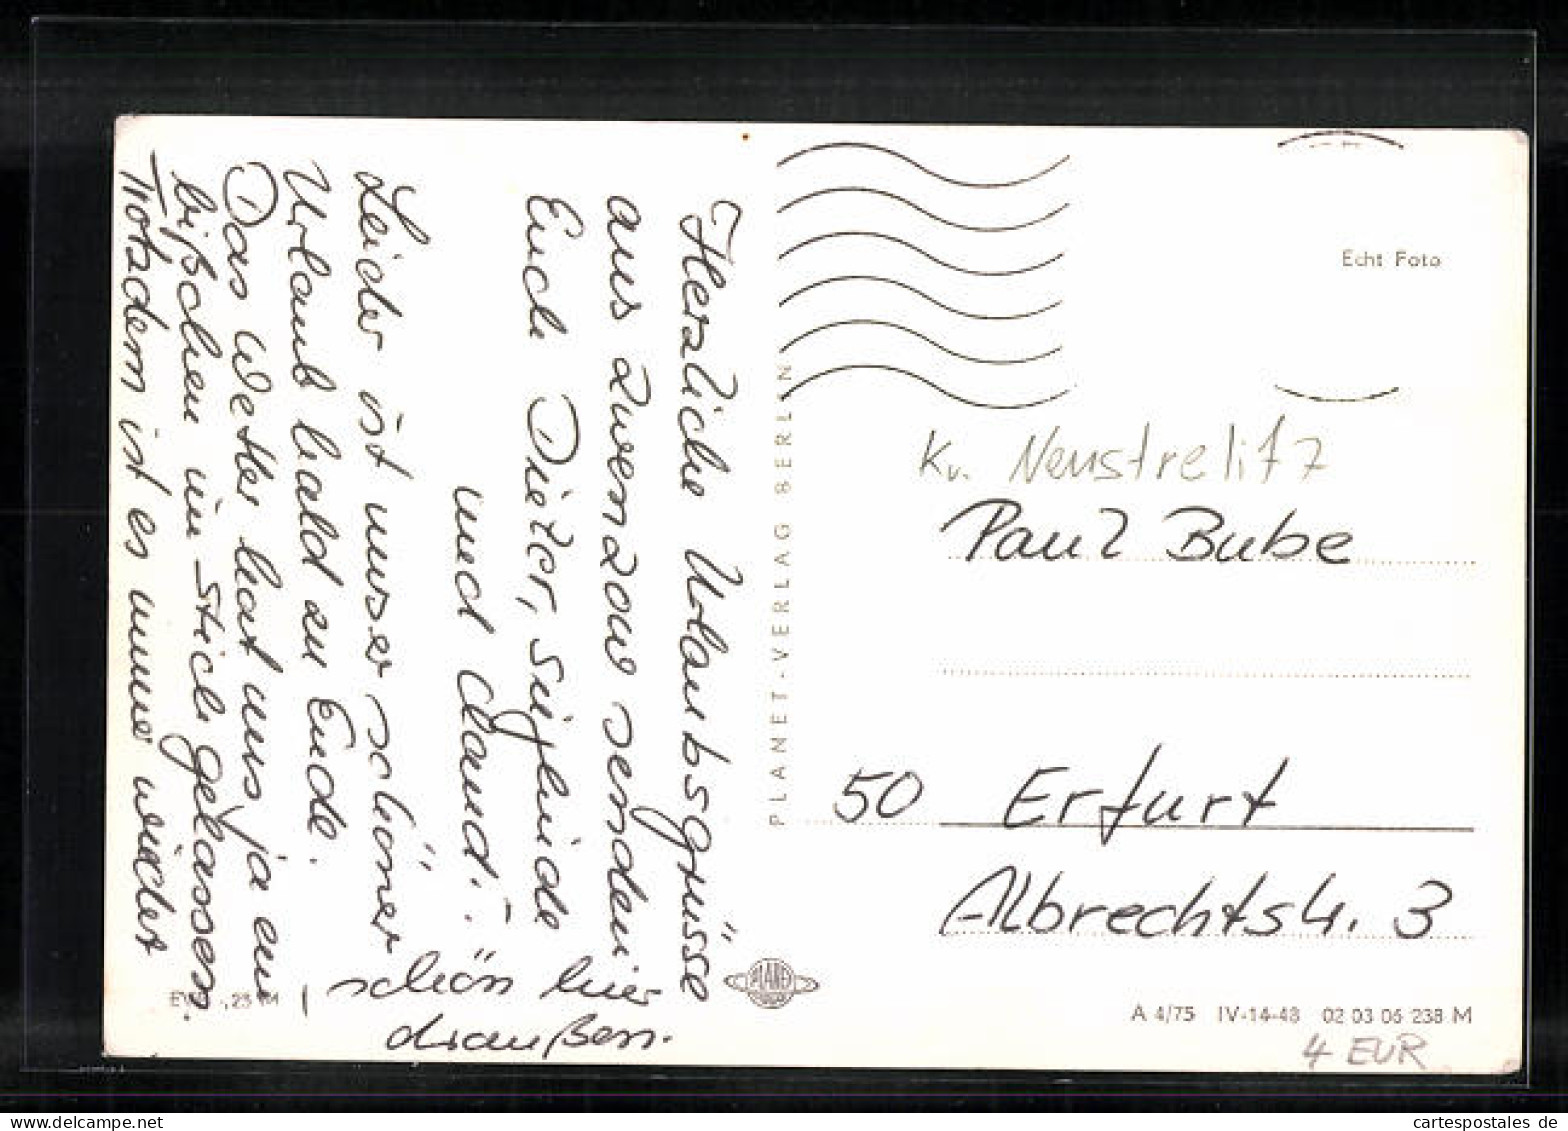 Herzliche Urlaubsgrüsse
aus Zwenzow senden
Euch Dieter, Sieglinde
und Claud.
Leider ist unser schöner
Urlaub bald zu Ende.
Das Wetter hat uns ja ein
bißchen im Stich gelassen.
Trotzdem ist es immer wieder
schön hier
draußen.
PLANET-VERLAG BERLIN
Echt Foto
Kr. Neustrelitz
Paul Bube
50 Erfurt
Albrechtstr. 3
PLANET
A 4/75 IV-14-48 02 03 06 238 M
4 EUR
cartespostales de